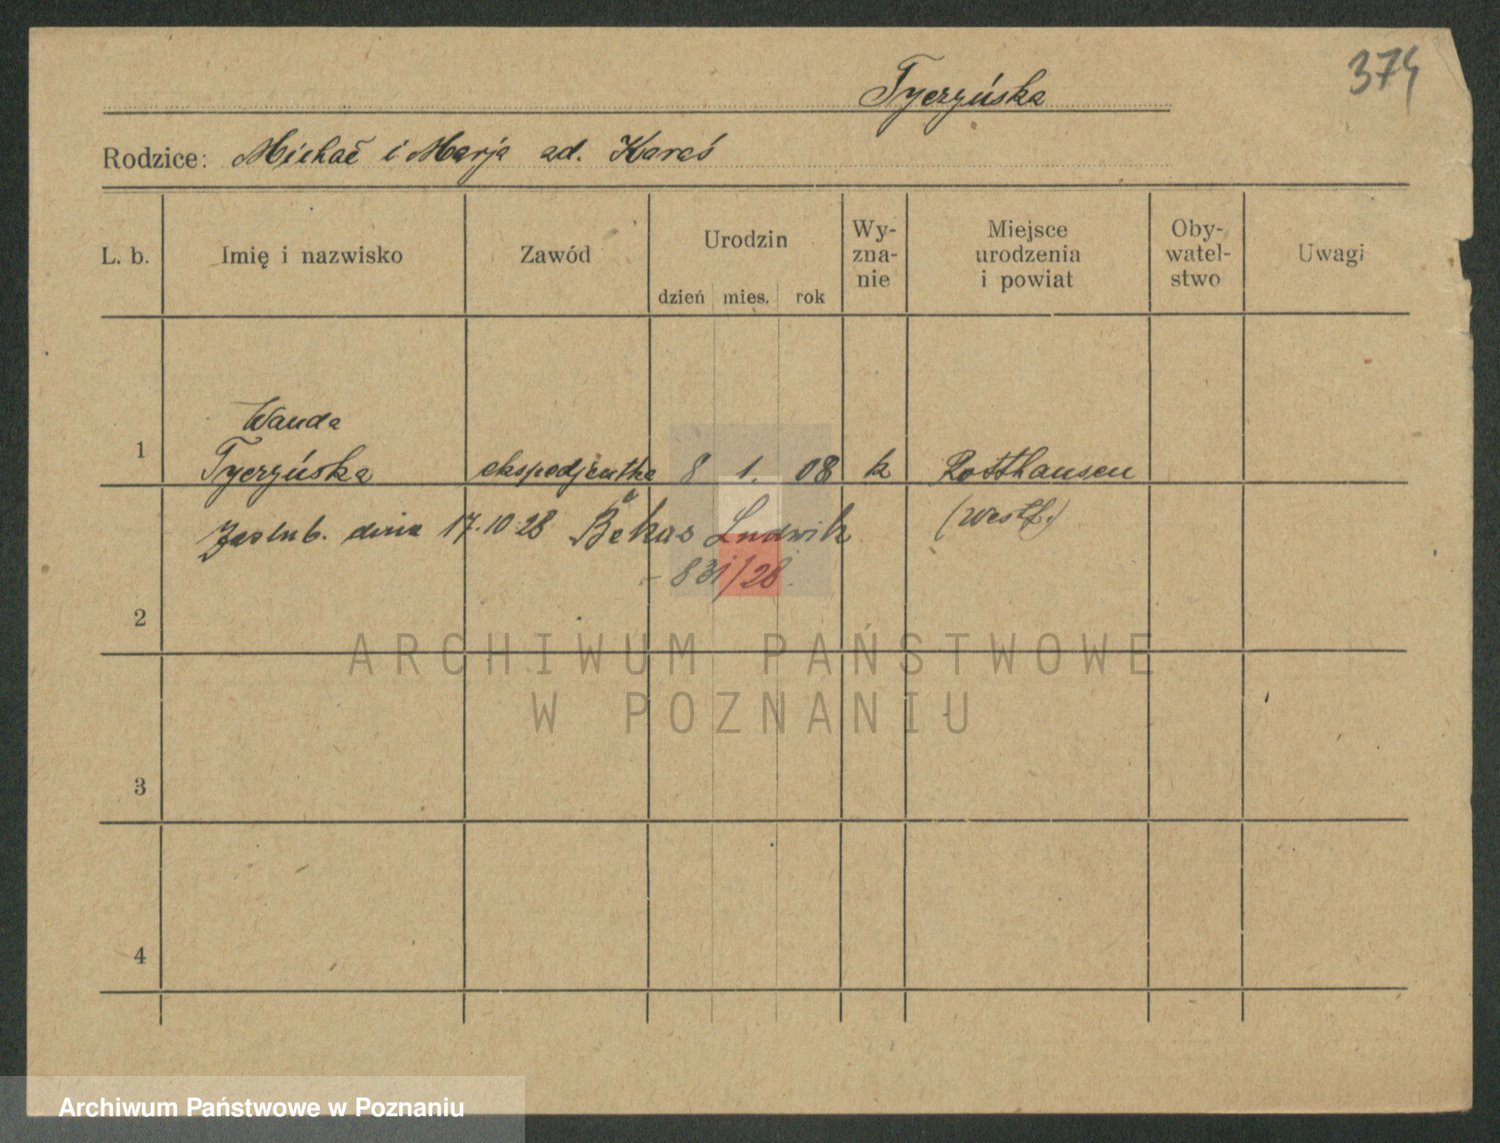 374
Tyczyńska
Rodzice: Michał i Marja zd. Karaś
L. b.
Imię i nazwisko
Zawód
Urodzin
dzień mies. rok
Wy-
zna-
nie
Miejsce
urodzenia
i powiat
Oby-
watel-
stwo
Uwagi
Wanda
1 Tyczyńska ekspedjentka 8 1. 08 k Rotthausen
(Westf.)
Zaślub. dnia 17.10.28 Ludwik
831/28.
2
ARCHIWUM PAŃSTWOWE
W POZNANIU
3
4
Archiwum Państwowe w Poznaniu